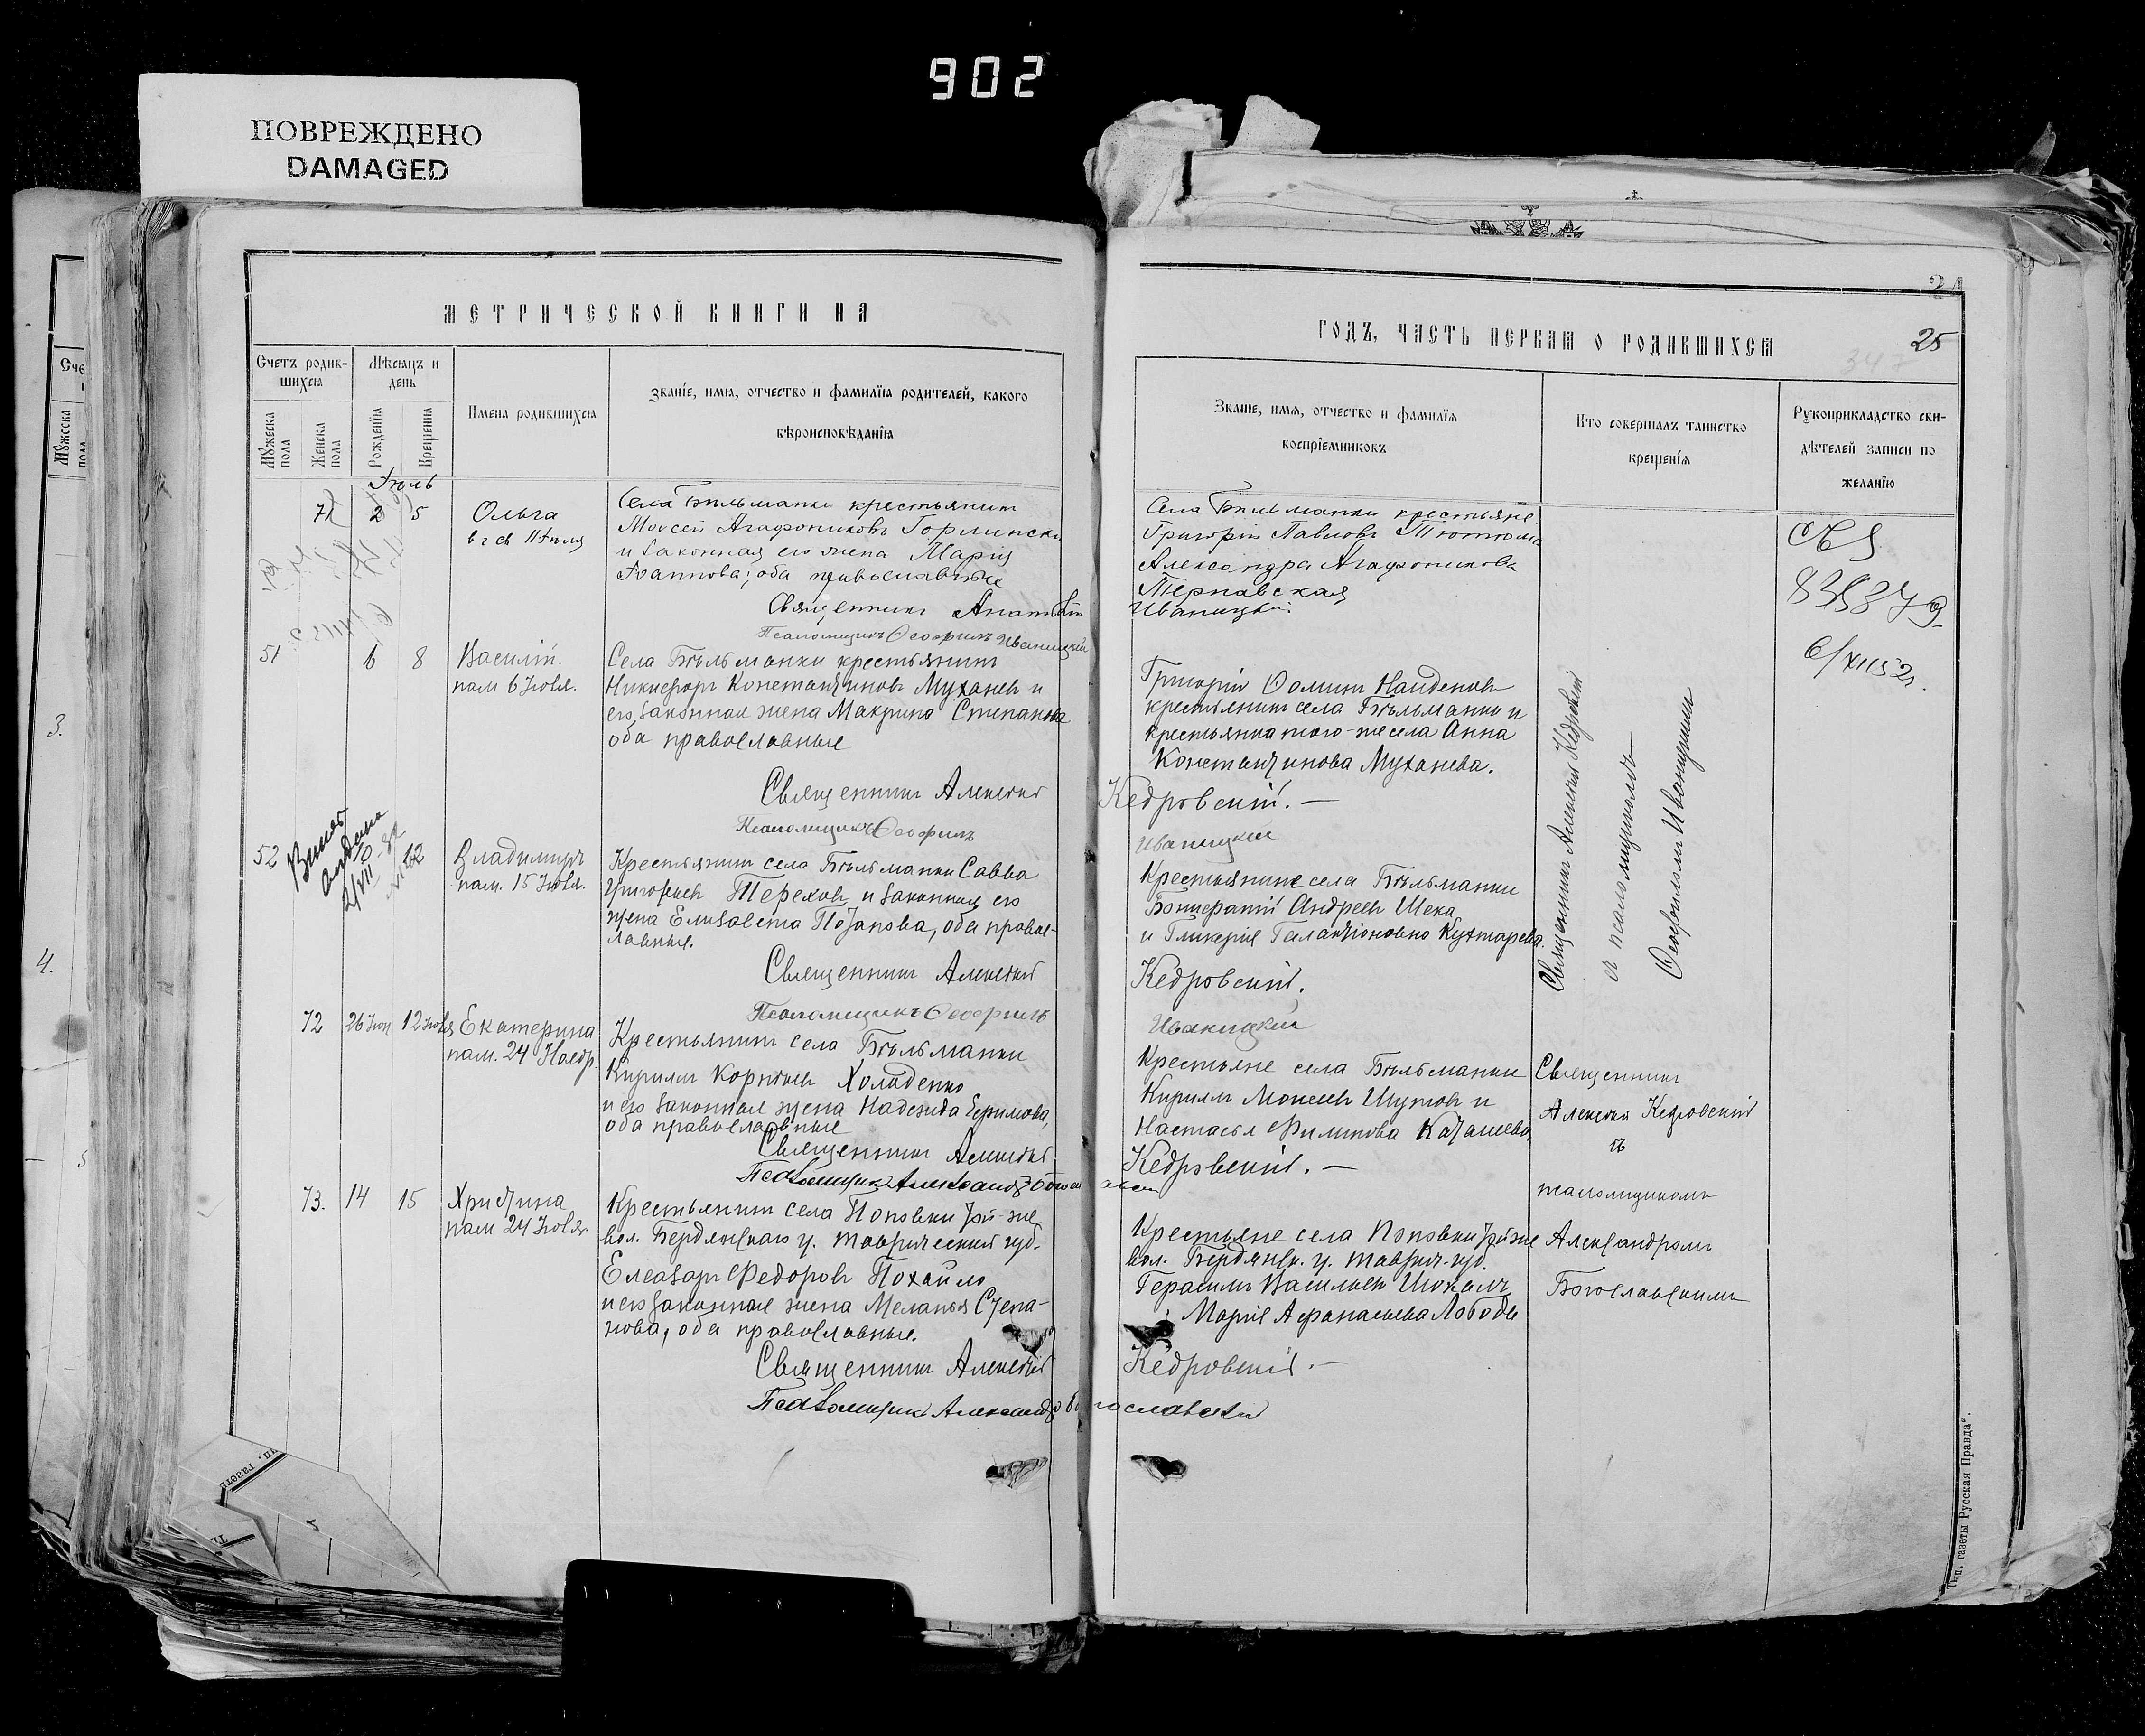 902
ПОВРЕЖДЕНО
DAMAGED
МЕТРИЧЕСКОЙ КНИГИ НА
Счетъ родив-
шихся
Мѣсяцъ и
день
Имена родившихся
Званіе, имя, отчество и фамилія родителей, какого
вѣроисповѣданія
Мужеска
пола
Женска
пола
Рожденія
Крещенія
Іюль
71 2 5 Ольга
11 Іюля
Села Бѣльманки крестьянинъ
Моисей Агафониковъ Горлински
и законная его жена Марія
Іоаннова; оба православные
Священникъ
Псаломщикъ Ѳеофилъ Иваницкій
51 6 8 Василій.
пам 6 Іюля.
Села Бѣльманки крестьянинъ
Никифоръ Константиновъ Муханевъ и
его законная жена Макрина Степанова
оба православные
Священникъ Алексій
Псаломщикъ Ѳеофилъ
52 12 Владимиръ
пам. 15 Іюля.
Крестьянинъ села Бѣльманки Савва
Григорьевъ Тереховъ и законная его
жена Елизавета Потапова, оба правос-
лавные.
Священникъ Алексій
Псаломщикъ Ѳеофилъ
72 26 Іюн 12 Іюля Екатерина
пам. 24 Ноябр.
Крестьянинъ села Бѣльманки
Кириллъ Корнѣевъ Холоденко
и его законная жена Надежда Ефимова,
оба православные
Священникъ Алексій
Псаломщикъ Александръ
73. 14 15 Христина
пам 24 Іюля.
Крестьянинъ села Поповки той-же
вол. Бердянскаго у. Таврической губ.
Елеазаръ Федоровъ Похайло
и его законная жена Меланья Степа-
нова, оба православные.
Священникъ Алексій
Псаломщикъ Александръ
ГОДЪ, ЧАСТЬ ПЕРВАЯ О РОДИВШИХСЯ
25
347
Званіе, имя, отчество и фамилія
воспріемниковъ
Кто совершалъ таинство
крещенія
Рукоприкладство сви-
дѣтелей записи по
желанію
Села Бѣльманки крестьяне
Григорій Павловъ
Александра Агафоникова
Тернавская
Иваницкій
Григорій Ѳоминъ Найденовъ
крестьянинъ села Бѣльманки и
крестьянка того-же села Анна
Константинова Муханева.
Кедровскій. —
Иваницкій
Крестьяне села Бѣльманки
Андреевъ Шека
и Гликерія Галактіоновна Кухтарева.
Кедровскій.
Иваницкій
Крестьяне села Бѣльманки
Кириллъ Моисеевъ Шутовъ и
Настасья Филипова
Кедровскій. —
Крестьяне села Поповки той же
вол. Бердянск. у. Таврич. губ.
Герасимъ Васильевъ
Марія Афанасьева Лобода
Кедровскій. —
Богославскій
Священникъ Алексій Кедровскій
съ псаломщикомъ
Ѳеофиломъ Иваницкимъ
Священникъ
Алексій Кедровскій
съ
псаломщикомъ
Александромъ
Богославскимъ
6/XII 52 г.
Тип. газеты „Русская Правда“.
3.
4.